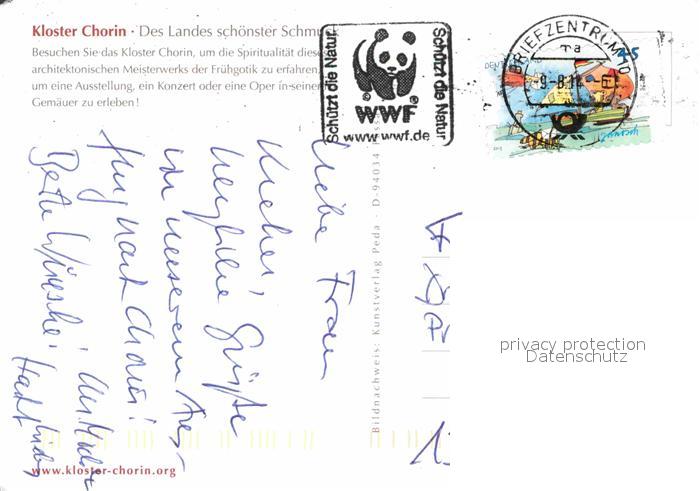 Kloster Chorin · Des Landes schönster Schmuck
Besuchen Sie das Kloster Chorin, um die Spiritualität dieses
architektonischen Meisterwerks der Frühgotik zu erfahren,
um eine Ausstellung, ein Konzert oder eine Oper in seinen
Gemäuer zu erleben!
Schützt die Natur
WWF
Schützt die Natur
www.wwf.de
BRIEFZENTRUM 10
ma
45
Janosch
Liebe Frau
herzliche Grüße
von unserem Aus-
flug nach Chorin!
Beste Wünsche!
Bildnachweis: Kunstverlag Peda · D-94034
privacy protection
Datenschutz
www.kloster-chorin.org